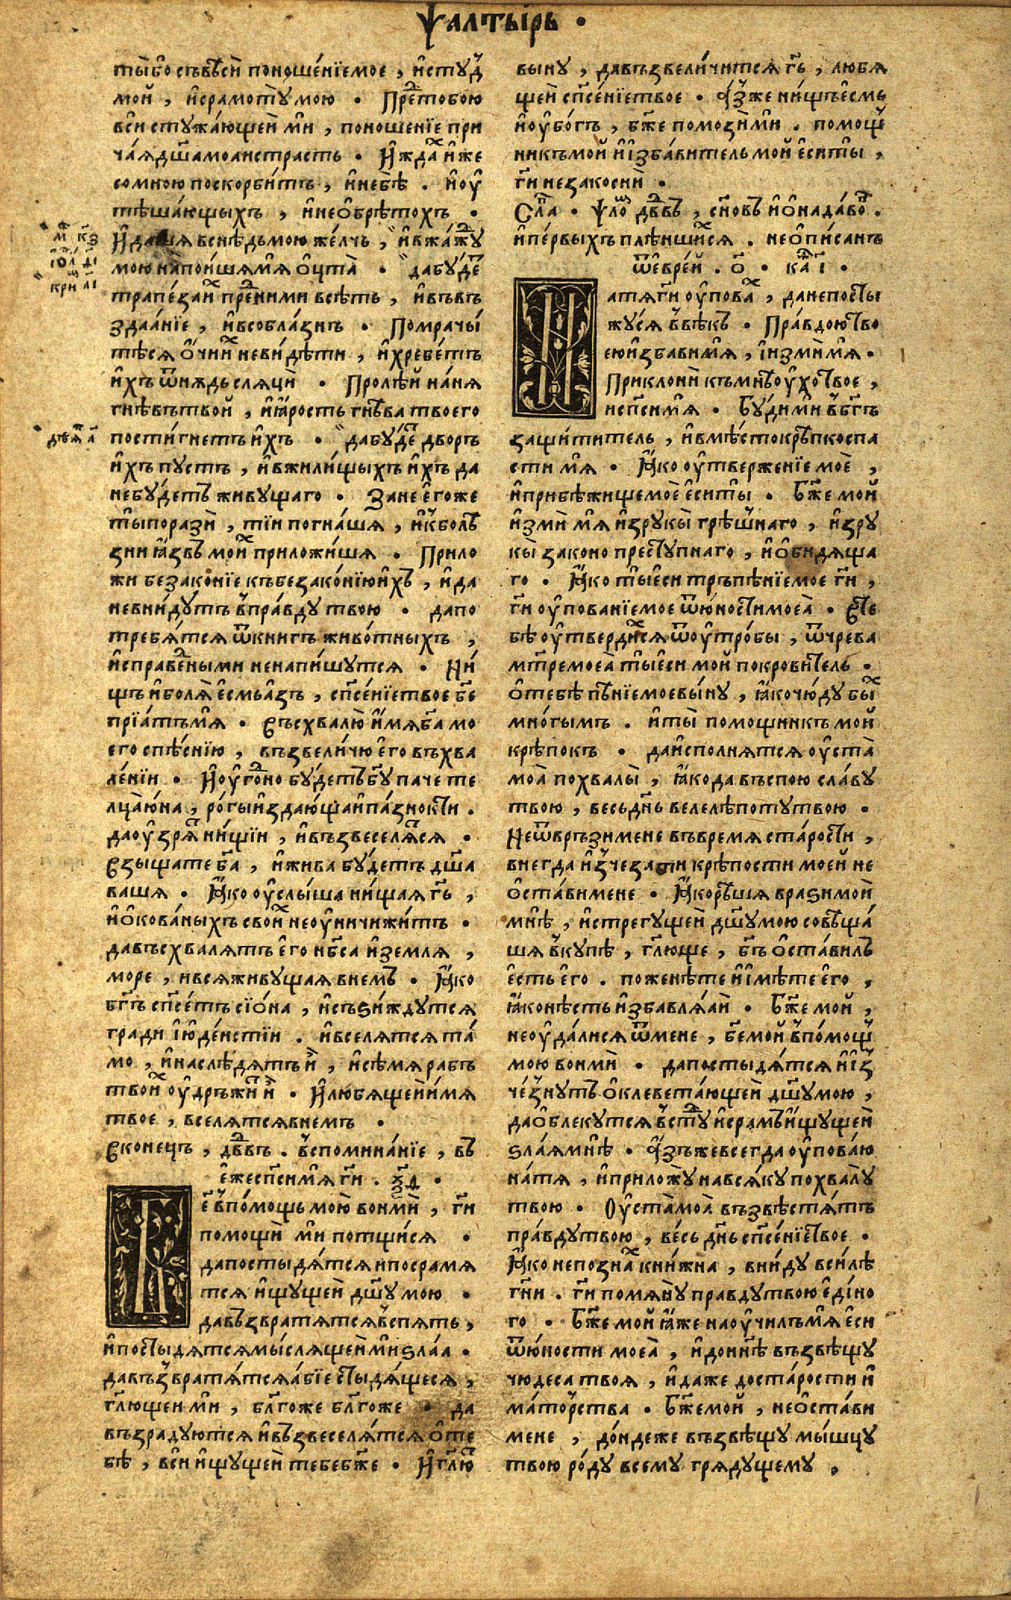 Ѱалтырь ·
ты бо съвѣси поношенїе мое , и студ
мой , и срамоту мою · Пред тобою
вси стужающеи ми , поношенїе при
чая дш҃а моа и страсть · И ждах иже
со мною поскорбитъ , и не бѣ . и оу
тѣшающыхъ , и не обрѣтохъ ·
И даша в снѣдь мою желчь , и в жажду
мою напоиша мя оцта · да буде
трапеза их пред ними в сѣть , и въ въ
здаанїе , и в соблазнъ · Помрачы
тѣся очи их не видѣти , и хребетъ
ихъ ѿнждь сляци · Пролѣй на ня
гнѣвъ твой , и ярость гнѣва твоего
постигнетъ ихъ · да буде дворъ
ихъ пустъ , и в жилищыхъ ихъ да
не будетъ живущаго · Зане егоже
ты порази , тїи погнаша , и к болѣ
зни язвъ моих приложиша · Прило
жи безаконїе къ безаконїю ихъ , и да
не внидутъ в правду твою · да по
требятся ѿ книгъ животныхъ ,
и с праведными ненапишутся · Ни
щъ и боля есмь азъ , сп҃сенїе твое б҃е
прїатъ мя · Въсхвалю имя б҃а мо
его с пѣснїю , възвеличю его въ хва
ленїи · И оугодно будетъ б҃у паче те
лца юна , рогы издающа и пазнокти .
да оузрят нищїи , и възвеселятся ·
Взыщате б҃а , и жива будетъ дш҃а
ваша · Яко оуслыша нищая г҃ь ,
и окованыхъ своих не оуничижитъ ·
да въсхвалятъ его нб҃са и земля ,
море , и вся живущая в немъ · Яко
б҃гъ сп҃сетъ сїона , и съзиждутся
гради їюдеистїи . и вселятся та
мо , и наслѣдятъ и , и сѣмя рабъ
твоих оудръжит и · И любящеи имя
твое , вселятся в немъ ·
В конецъ , дв҃дъ . въспоминанїе , въ
еже сп҃си мя г҃и . ѯ҃д ·
Б҃е в помощь мою вонми , г҃и
помощи ми потщися ·
да постыдятся и посрамя
тся ищущеи дш҃у мою ·
да възвратятся въспять ,
и постыдятся мыслящеи ми злаа ·
да възвратятся абїе стыдящеся ,
гл҃ющеи ми , бл҃гоже бл҃гоже · да
възрадуются и възвеселятся о те
бѣ , вси ищущеи тебе б҃же · И гл҃ю
м҃ к҃з
їѡ҃ д҃і
кри а҃і
дѣя а҃
выну , да възвеличится г҃ь , любя
щеи сп҃сенїе твое · Азже нищъ есмь
и оубогъ , б҃же помози ми . помощ
никъ мой и избавитель мой еси ты ,
г҃и не закосни ·
Сл҃а · Ѱало҃ дв҃дъ , сн҃овъ ионадавл .
и первыхъ плѣншися . не описанъ
ѿ еврей . о҃ · кафі ·
На тя г҃и оупова , да не посты
жуся в вѣкъ · Правдою тво
ею избави мя , і изми мя .
Приклони къ мнѣ оухо твое ,
и сп҃си мя · Буди ми в б҃гъ
защититель , и в мѣсто крѣпко спа
сти мя · Яко оутверженїе мое ,
и прибѣжище мое еси ты · Б҃же мой
изми мя из рукы грѣшнаго , из ру
кы законо преступнаго , и обидяща
го . Яко ты еси тръпѣнїе мое г҃и ,
г҃и оупованїе мое ѿ юности моеа · В те
бѣ оутвердихся ѿ оутробы , ѿ чрева
мт҃ре моеа ты еси мой покровитель .
о тебѣ пѣнїе мое выну , яко чюдо бых
многымъ . и ты помощникъ мой
крѣпокъ · да исполнятся оуста
моа похвалы , яко да въспою славу
твою , весь дн҃ь велелѣпоту твою ·
Не ѿвръзи мене въ время старости ,
внегда изчезати крѣпости моей не
остави мене · Яко рѣша врази мои
мнѣ , и стрегущеи дш҃у мою совѣща
ша вкупѣ , гл҃юще , б҃гъ оставилъ
есть его . поженѣте и имѣте его ,
яко нѣсть избавляай · Б҃же мой ,
не оудалися ѿ мене , б҃е мой в помощ
мою вонми · да постыдятся и из
чезнутъ оклеветающеи дш҃у мою ,
да облекутся в студ и срамъ ищущеи
злаа мнѣ · Азъ же всегда оуповаю
на тя , и приложу на всяку похвалу
твою · Оуста моа възвѣстятъ
правду твою , весь дн҃ь сп҃сенїе твое .
Яко не познах книжна , вниду в силѣ
г҃ни . г҃и помяну правду твою едіно
го · Б҃же мой яже наоучилъ мя еси
ѿ юности моеа , и до нн҃ѣ възвѣщу
чюдеса твоя , и даже до старости и
маторства · Б҃же мой , не остави
мене , дондеже възвѣщу мышцу
твою роду всему грядущему ,